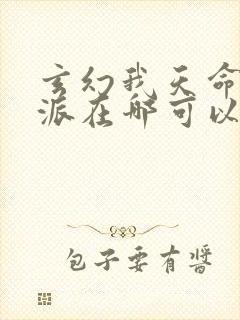 玄幻我天命
派在哪可以
包子要有醬